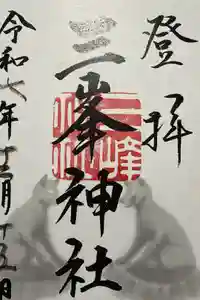 登拝
三峯神社
三峰
令和七年十二月十五日